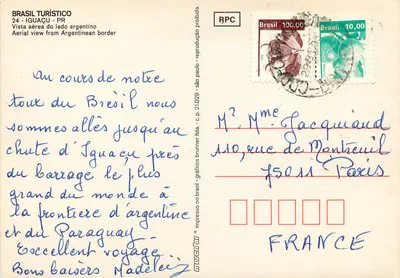 BRASIL TURÍSTICO
24 - IGUAÇU - PR
Vista aérea do lado argentino
Aerial view from Argentinean border
Au cours de notre
tour du Brésil nous
sommes allés jusqu'au
chute d'Iguaçu près
du barrage le plus
grand du monde à
la frontière d'argentine
et du Paraguay
Exccellent voyage
Bons baisers Madelei
RPC
Brasil 100,00
Brasil 10,00
M? Mme Jacquiand
110, rue de Montreuil
75011 Paris
FRANCE
impresso no brasil - gráficos brunner ltda. - c. p.
são paulo - reprodução proibida